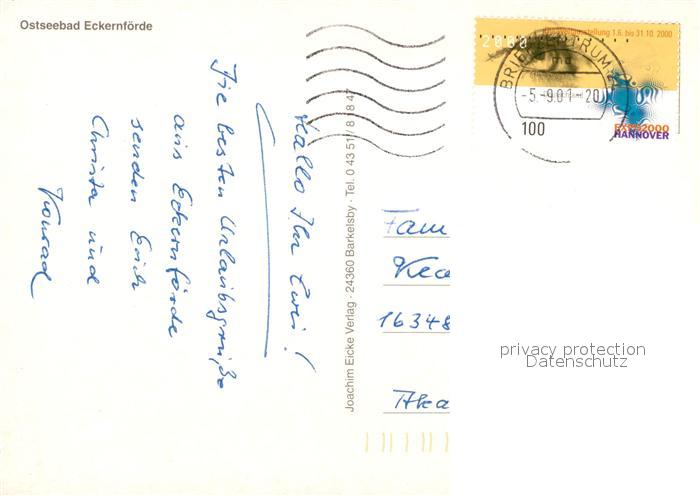 Ostseebad Eckernförde
Hallo Ihr Zwei!
Die besten Urlaubsgrüße
aus Eckernförde
senden Euch
Christa und
Konrad
Joachim Eicke Verlag · 24360 Barkelsby · Tel. 0 43 51 / 8 18 47
2000
1.6. bis 31.10. 2000
BRIEFZENTRUM
-5.-9.01-20
100
EXPO2000
HANNOVER
Fam
16348
privacy protection
Datenschutz